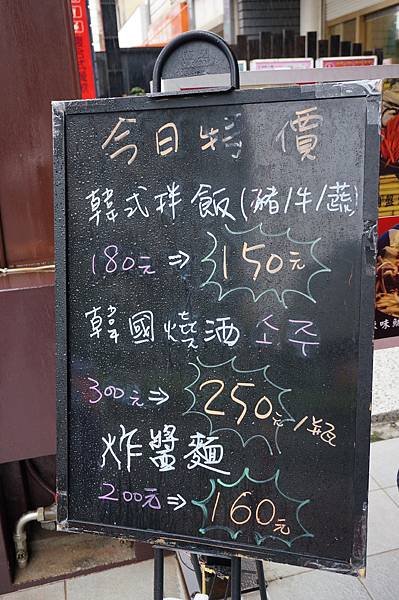 今日特價
韓式拌飯(豬/牛/蔬)
180元⇒150元
韓國燒酒 소주
300元⇒250元/瓶
炸醬麵
200元⇒160元